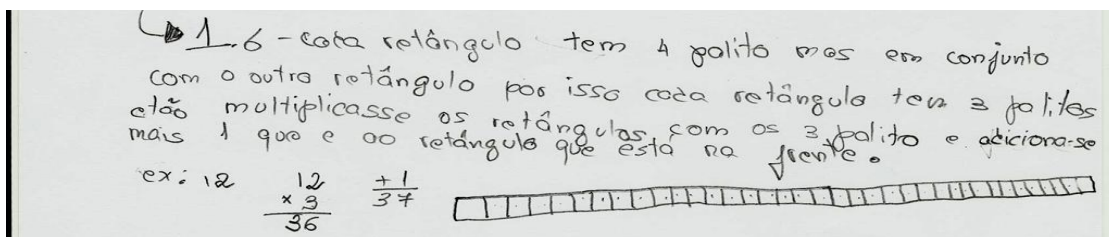 1.6 - cada retângulo tem 4 palito mas em conjunto
com o outro retângulo por isso cada retângulo tem 3 palitos
etão multiplicasse os retângulos com os 3 palito e adiciona-se
mais 1 que e ao retângulo que está na frente.
ex: 12 12 +1
x 3 37
36